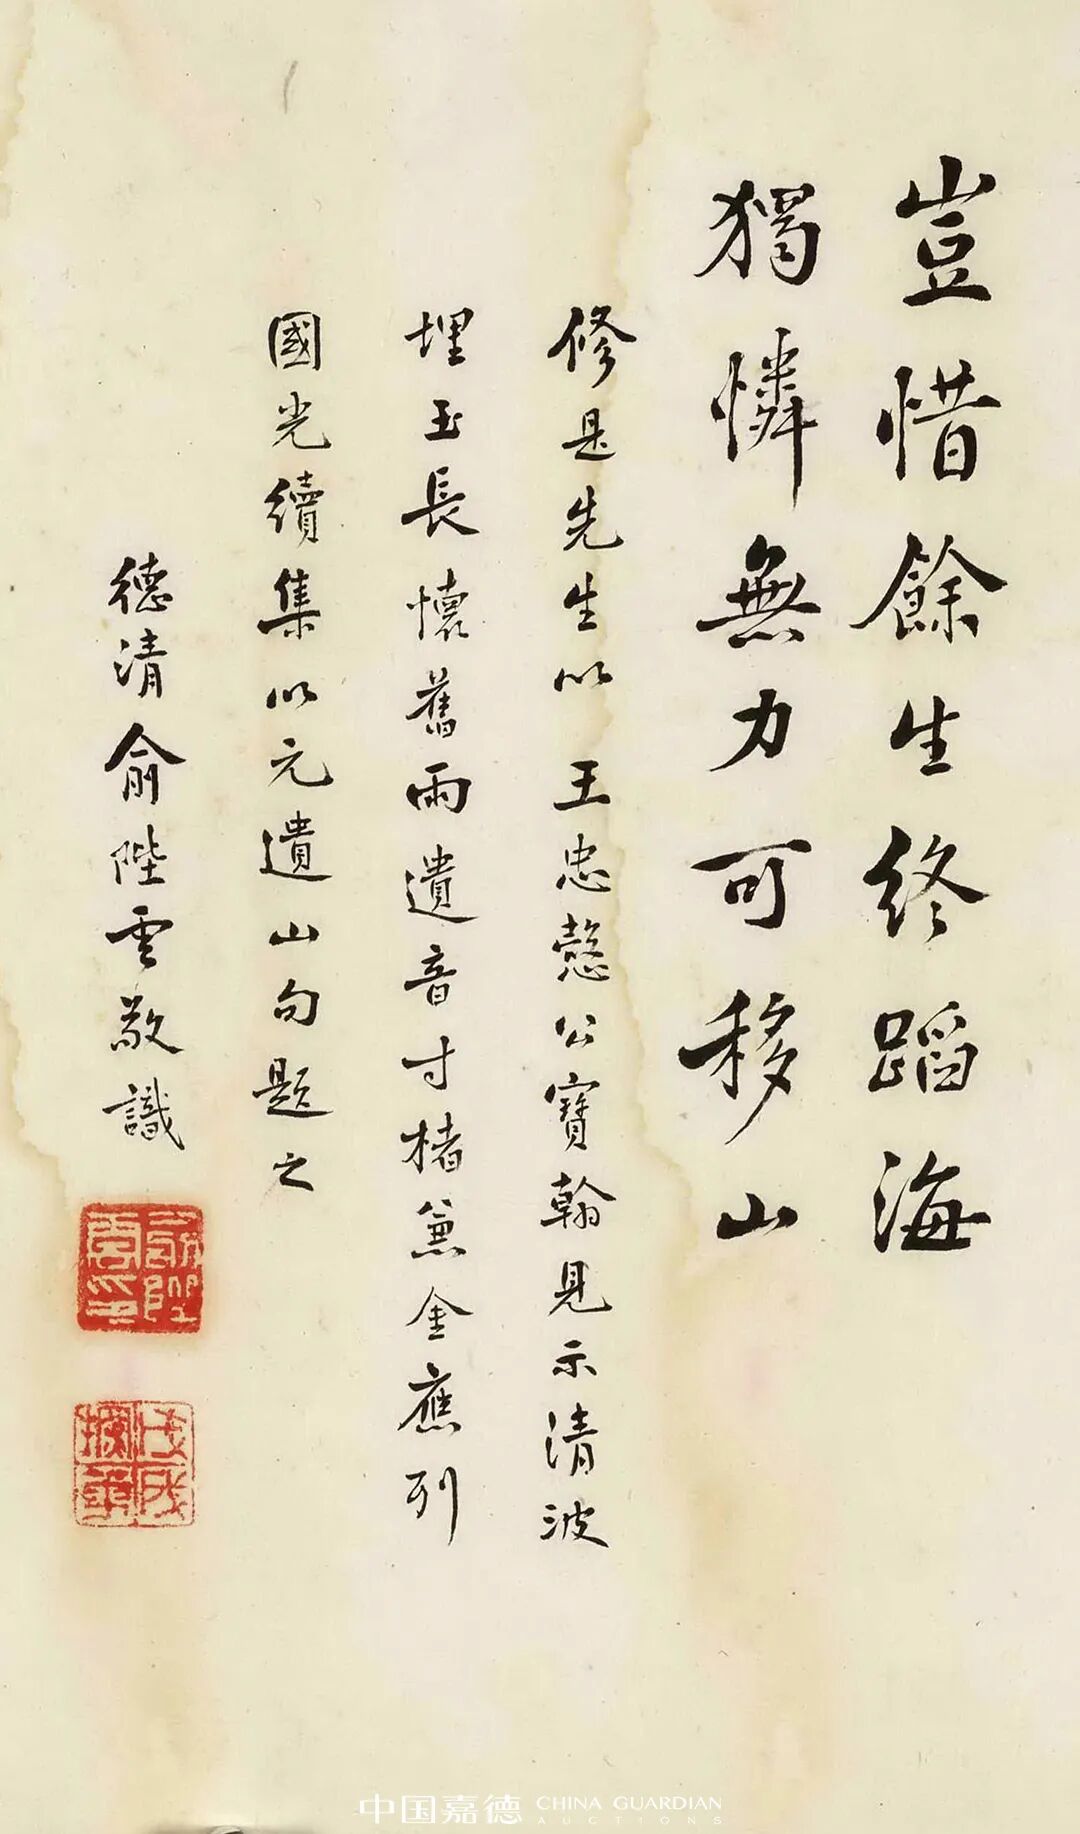 豈惜餘生終蹈海
獨憐無力可移山
修是先生以王忠愨公寶翰見示清波
埋玉長懷舊雨遺音寸楮兼金應列
國光續集以元遺山句題之
德清俞陛雲敬識
俞陛雲印
戊戌探花
中国嘉德 CHINA GUARDIAN
AUCTIONS